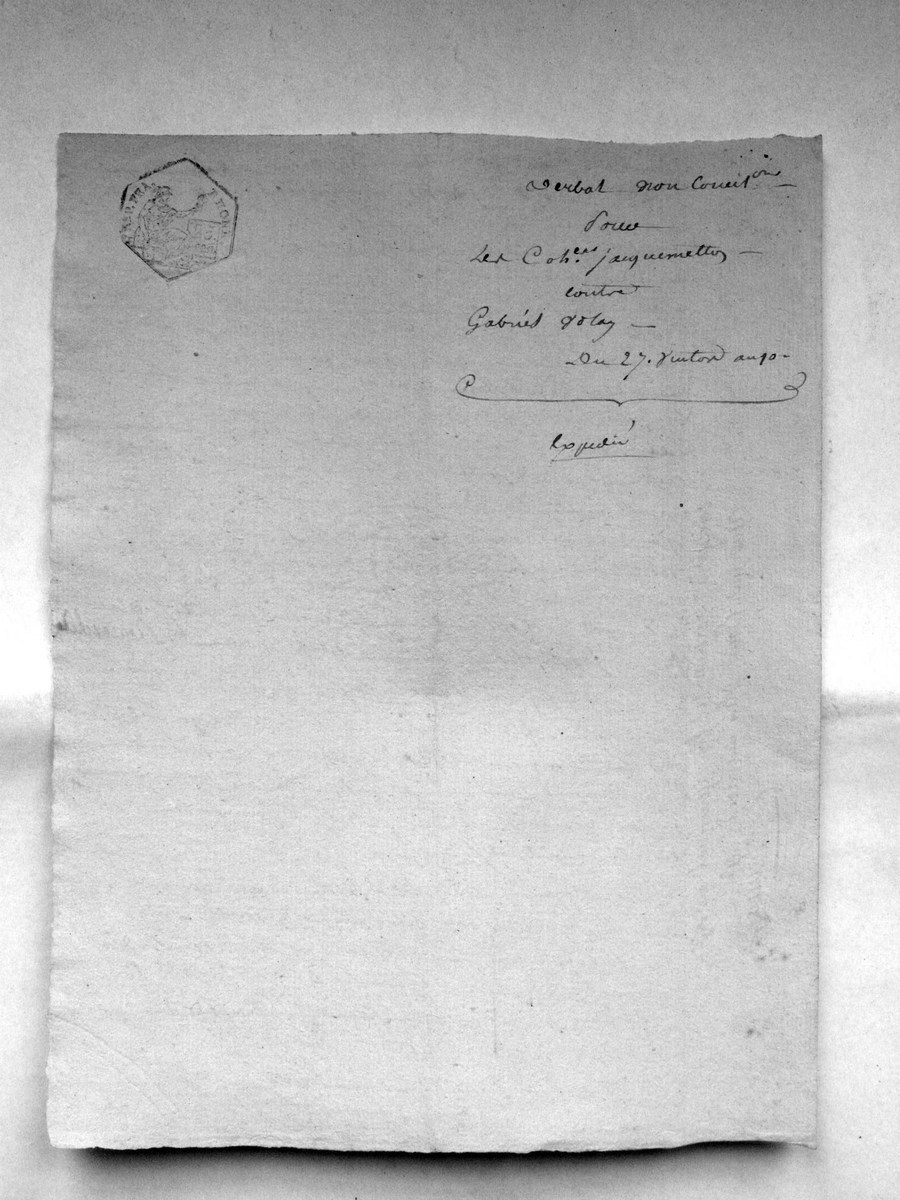 REP. FRA
Verbal non Concil.on
Pour
Les Coh.ers Jacquemettoz
contre
Gabriel
Du 27. Ventose an 10
Expedié